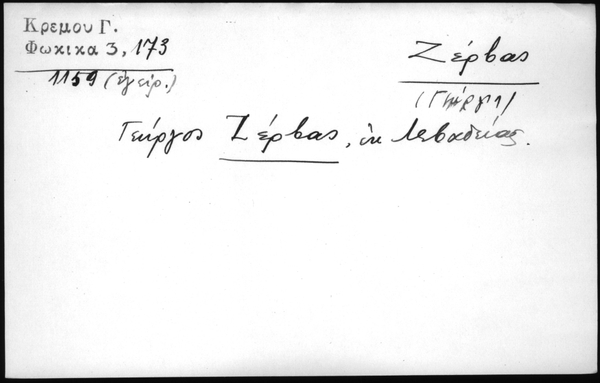 Κρεμου Γ.
Φωκικα 3, 173
1159 (έγειρ.)
Ζέρβας
(Γιώργη)
Γεώργος Ζέρβας, ἐκ Λεβαδείας.